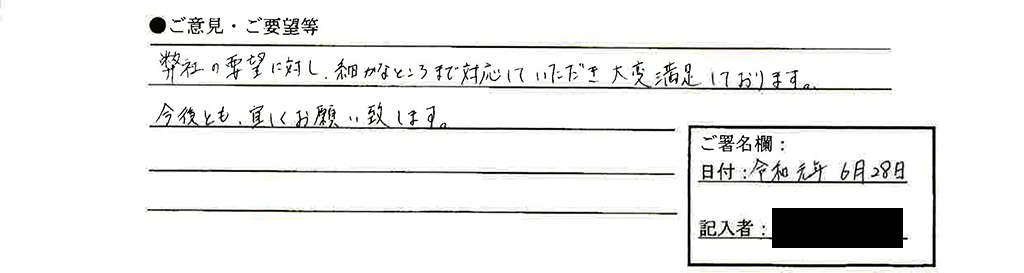 ●ご意見・ご要望等
弊社の要望に対し、細かなところまで対応していただき大変満足しております。
今後とも、宜しくお願い致します。
ご署名欄：
日付：令和元年 6月28日
記入者：